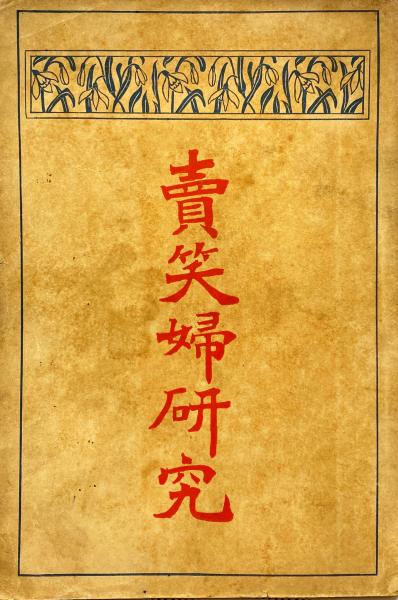 賣笑婦研究